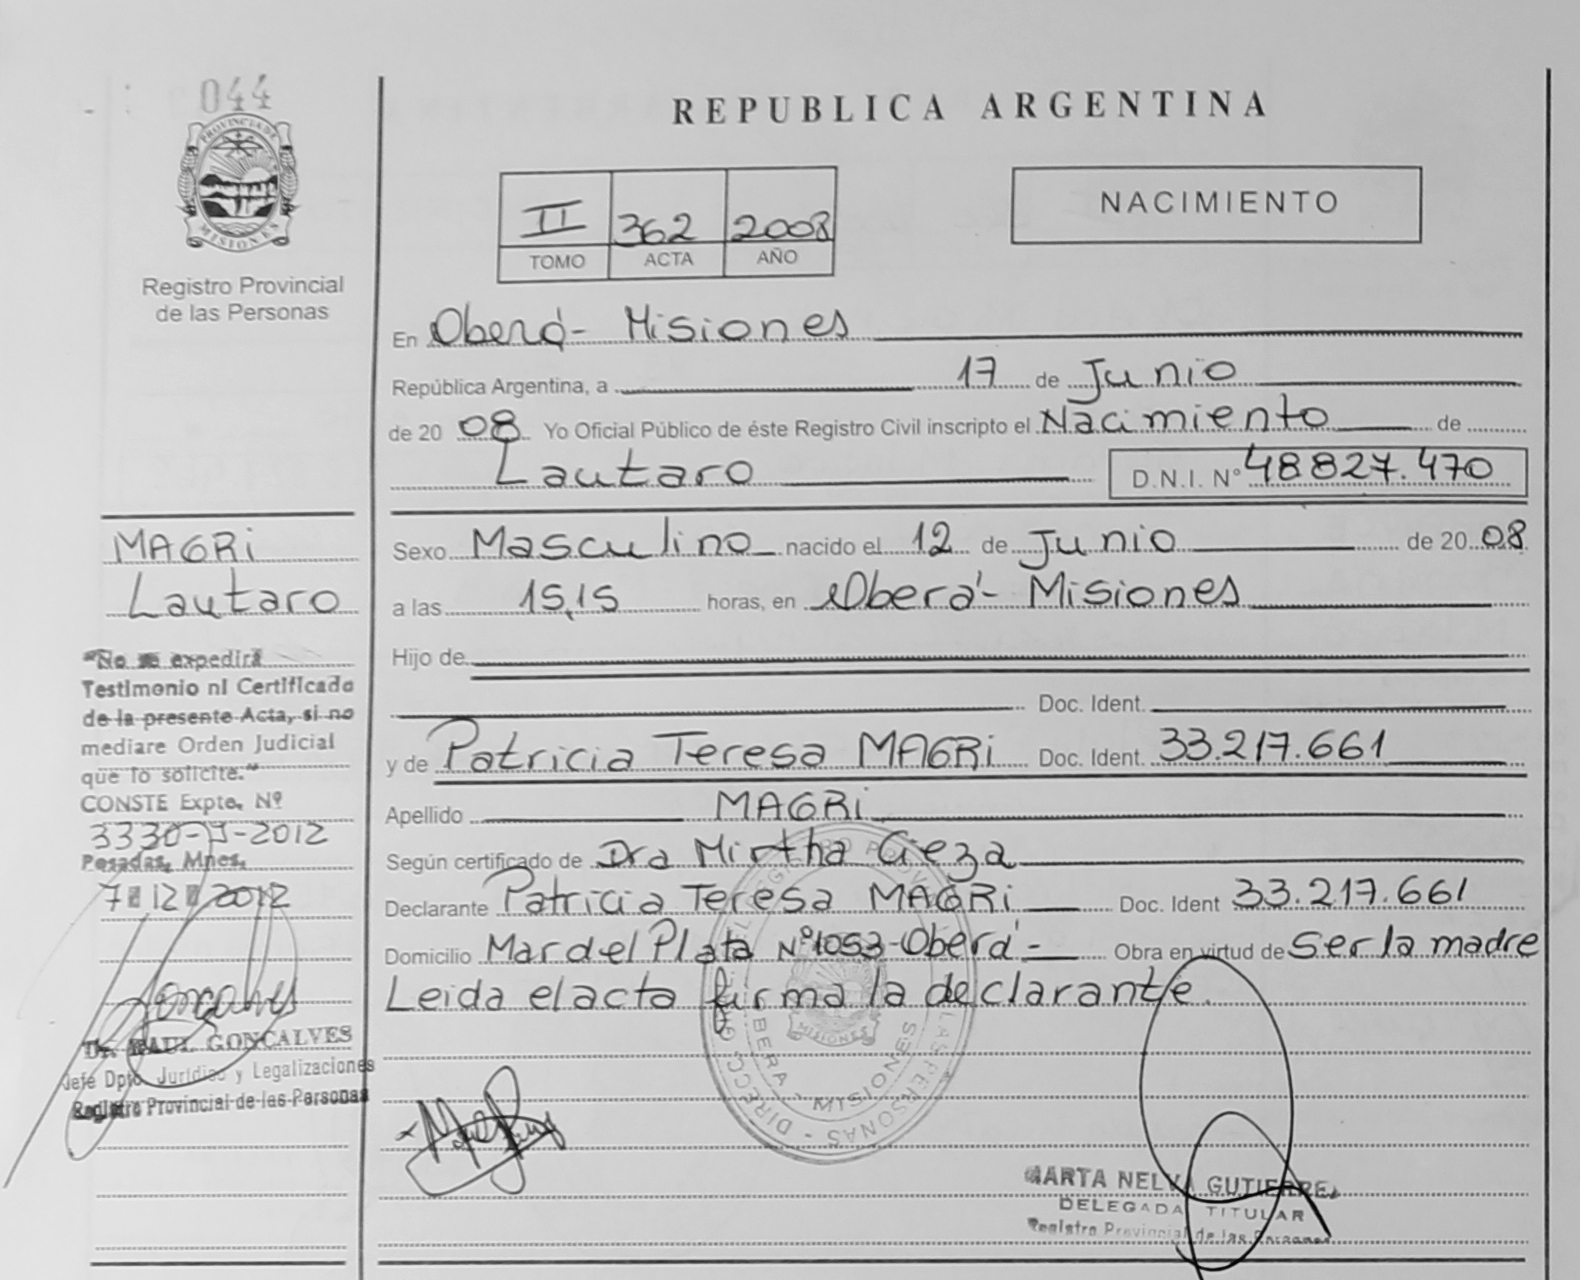 044
PROVINCIA DE
MISIONES
Registro Provincial
de las Personas
REPUBLICA ARGENTINA
II 362 2008
TOMO ACTA AÑO
NACIMIENTO
En Oberá- Misiones
República Argentina, a 17 de Junio
de 20 08 Yo Oficial Público de éste Registro Civil inscripto el Nacimiento de
Lautaro D.N.I. N° 48827.470
Sexo Masculino nacido el 12 de Junio de 20 08
a las 15,15 horas, en Oberá- Misiones
Hijo de
Doc. Ident.
y de Patricia Teresa MAGRi Doc. Ident. 33.217.661
Apellido MAGRi
Según certificado de Dra Mirtha Gieza
Declarante Patricia Teresa MAGRi Doc. Ident 33.217.661
Domicilio Mar del Plata N°1053-Oberá- Obra en virtud de Ser la madre
Leida el acta firma la declarante.
MAGRi
Lautaro
"No se expedirá
Testimonio ni Certificado
de la presente Acta, si no
mediare Orden Judicial
que lo solicite."
CONSTE Expte. Nº
3330- -2012
Posadas, Mnes.
7 12 2012
Dr. RAUL GONCALVES
Jefe Dpto. Juridico y Legalizaciones
Registro Provincial de las Personas
OBERA - MISIONES
MISIONES
MARTA NELVA GUTIERREZ
DELEGADA TITULAR
Registro Provincial de las Personas